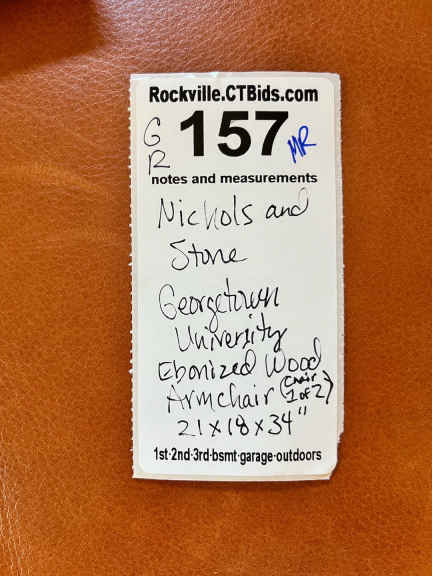 Rockville.CTBids.com
GR 157 MR
notes and measurements
Nichols and
Stone
Georgetown
University
Ebonized Wood
Armchair (Chair 1 of 2)
21 x 18 x 34"
1st·2nd·3rd·bsmt·garage·outdoors